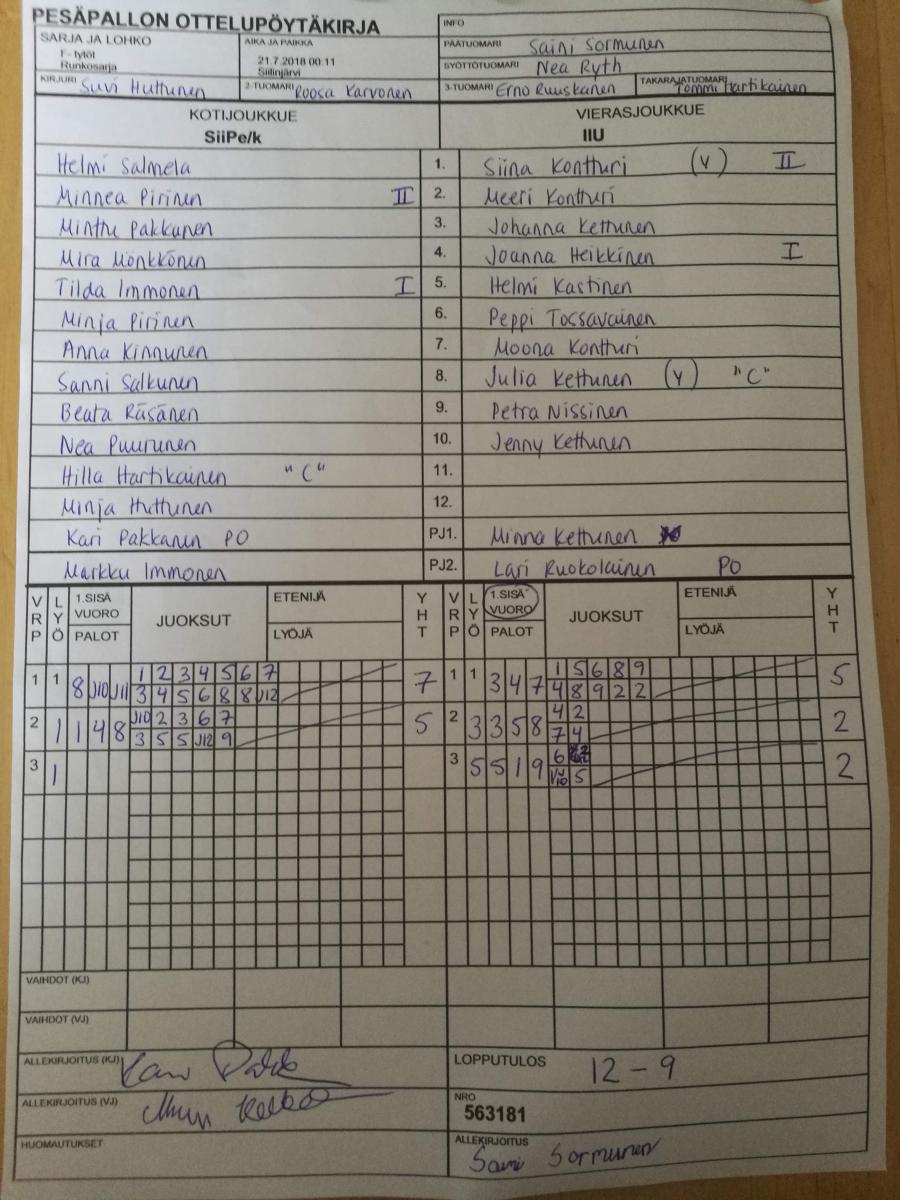 PESÄPALLON OTTELUPÖYTÄKIRJA
INFO
SARJA JA LOHKO
F - tytöt
Runkosarja
AIKA JA PAIKKA
21.7.2018 00:11
Siilinjärvi
PÄÄTUOMARI Saini Sormunen
SYÖTTÖTUOMARI Nea Ryth
KIRJURI Suvi Huttunen
2-TUOMARI Roosa Karvonen
3-TUOMARI Erno Ruuskanen
TAKARAJATUOMARI Tommi Hartikainen
KOTIJOUKKUE
SiiPe/k
VIERASJOUKKUE
IIU
Helmi Salmela 1. Siina Kontturi (V) II
Minnea Pirinen II 2. Meeri Kontturi
Minttu Pakkanen 3. Johanna Kettunen
Mira Mönkkönen 4. Joanna Heikkinen I
Tilda Immonen I 5. Helmi Kastinen
Minja Pirinen 6. Peppi Tossavainen
Anna Kinnunen 7. Moona Kontturi
Sanni Salkunen 8. Julia Kettunen (V) "C"
Beata Räsänen 9. Petra Nissinen
Nea Puurunen 10. Jenny Kettunen
Hilla Hartikainen "C" 11.
Minja Huttunen 12.
Kari Pakkanen PO PJ1. Minna Kettunen
Markku Immonen PJ2. Lari Ruokolainen PO
VRP LYÖ 1.SISÄ VUORO PALOT JUOKSUT ETENIJÄ LYÖJÄ YHT VRP LYÖ 1.SISÄ VUORO PALOT JUOKSUT ETENIJÄ LYÖJÄ YHT
1 1 8 J10 J11 1 2 3 4 5 6 7 7 1 1 3 4 7 1 5 6 8 9 5
3 4 5 6 8 8 J12 4 8 9 2 2
2 1 1 4 8 J10 2 3 6 7 5 2 3 3 5 8 4 2 2
3 5 5 J12 9 7 4
3 1 3 5 5 1 9 6 2
5
VAIHDOT (KJ)
VAIHDOT (VJ)
ALLEKIRJOITUS (KJ)
LOPPUTULOS 12 - 9
ALLEKIRJOITUS (VJ)
NRO
563181
HUOMAUTUKSET
ALLEKIRJOITUS
Saini Sormunen